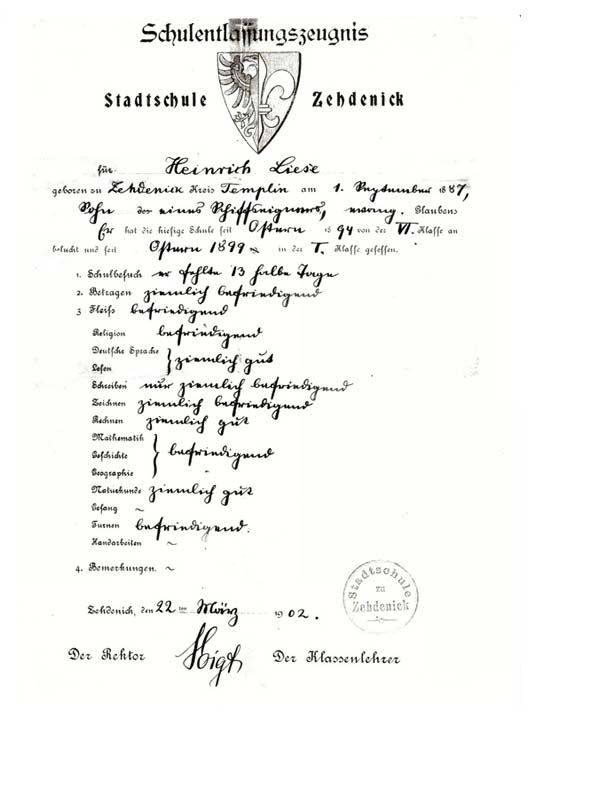 Schulentlassungszeugnis
Stadtschule Zehdenick
für Heinrich Liese
geboren zu Zehdenick Kreis Templin am 1. September 1887,
Sohn des eines Schiffseigners, evang. Glaubens
Er hat die hiesige Schule seit Ostern 1894 von der VI. Klasse an
besucht und seit Ostern 1899 in der I. Klasse gesessen.
1. Schulbesuch er fehlte 13 halbe Tage
2. Betragen ziemlich befriedigend
3 Fleiß befriedigend
Religion befriedigend
Deutsche Sprache
Lesen } ziemlich gut
Schreiben nur ziemlich befriedigend
Zeichnen ziemlich befriedigend
Rechnen ziemlich gut
Mathematik
Geschichte } befriedigend
Geographie
Naturkunde ziemlich gut
Gesang ~
Turnen befriedigend.
Handarbeiten ~
4. Bemerkungen. ~
Stadtschule
zu
Zehdenick
Zehdenick, den 22ten März 1902.
Der Rektor
Der Klassenlehrer